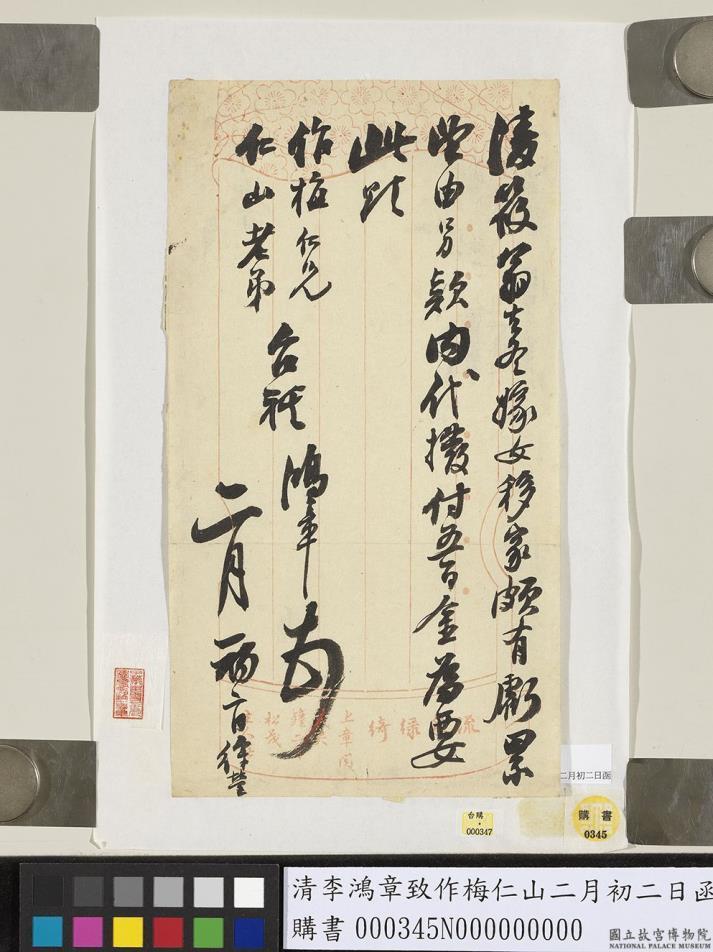 凌筱翁去冬嫁女移家頗有虧累
望由另款內代撥付五百金為要
此頌
作梅仁兄
仁山老弟
台祺 鴻章 頓
二月初二日徐營
流
綠
綺
上章閹
松茂
二月初二日函
台購
000347
購書
0345
清李鴻章致作梅仁山二月初二日函
購書 000345N000000000
國立故宮博物院
NATIONAL PALACE MUSEUM